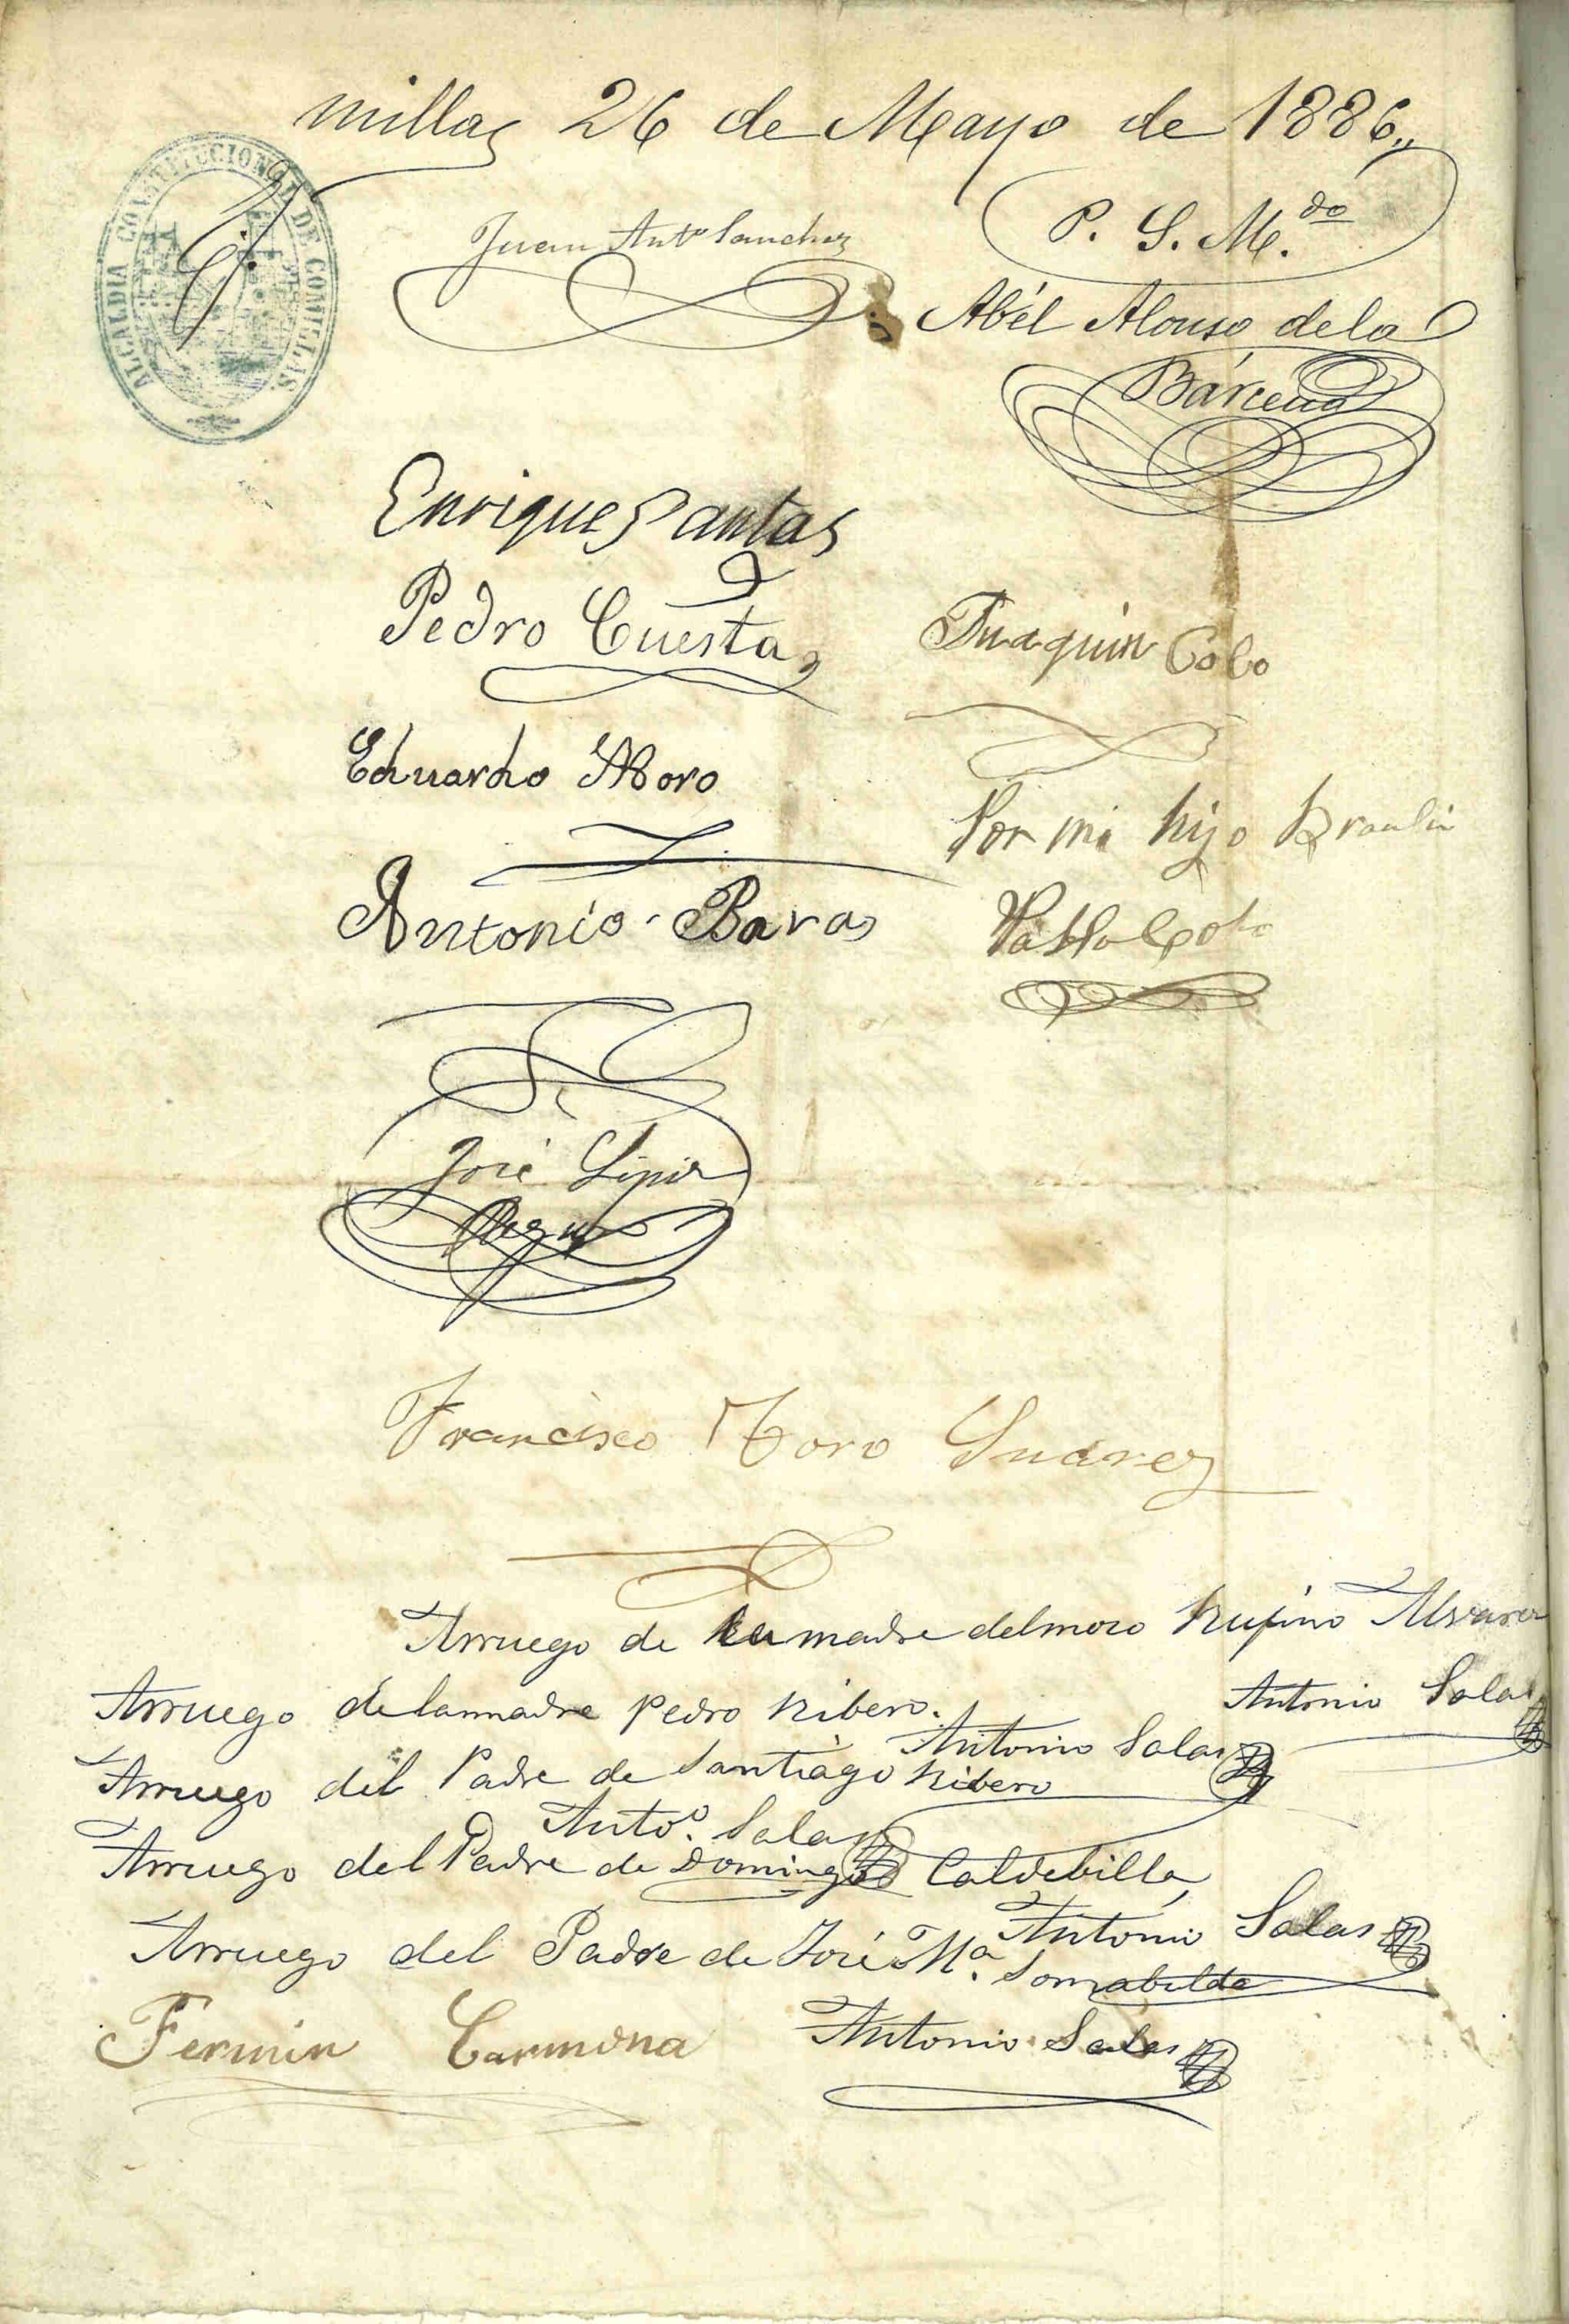 millas 26 de Mayo de 1886,,
ALCALDIA CONSTITUCIONAL DE COMILLAS
P. S. M.do
Juan Anto Sanchez
Abél Alonso de la
Bárcena
Enrique Santas
Pedro Cuesta
Juaquin Cobo
Eduardo Moro
Por mi hijo Braulio
Antonio Baras
Pablo Cobo
José
Francisco Toro Suárez
Arruego de la madre del moso Rufino Alvarez
Antonio Salas
Arruego de la madre Pedro Ribero.
Antonio Salas
Arruego del Padre de Santiago Ribero
Anto. Salas
Arruego del Padre de Domingo Caldebilla
Antonio Salas
Arruego del Padre de José Ma. Somabilda
Fermin Carmona
Antonio Salas